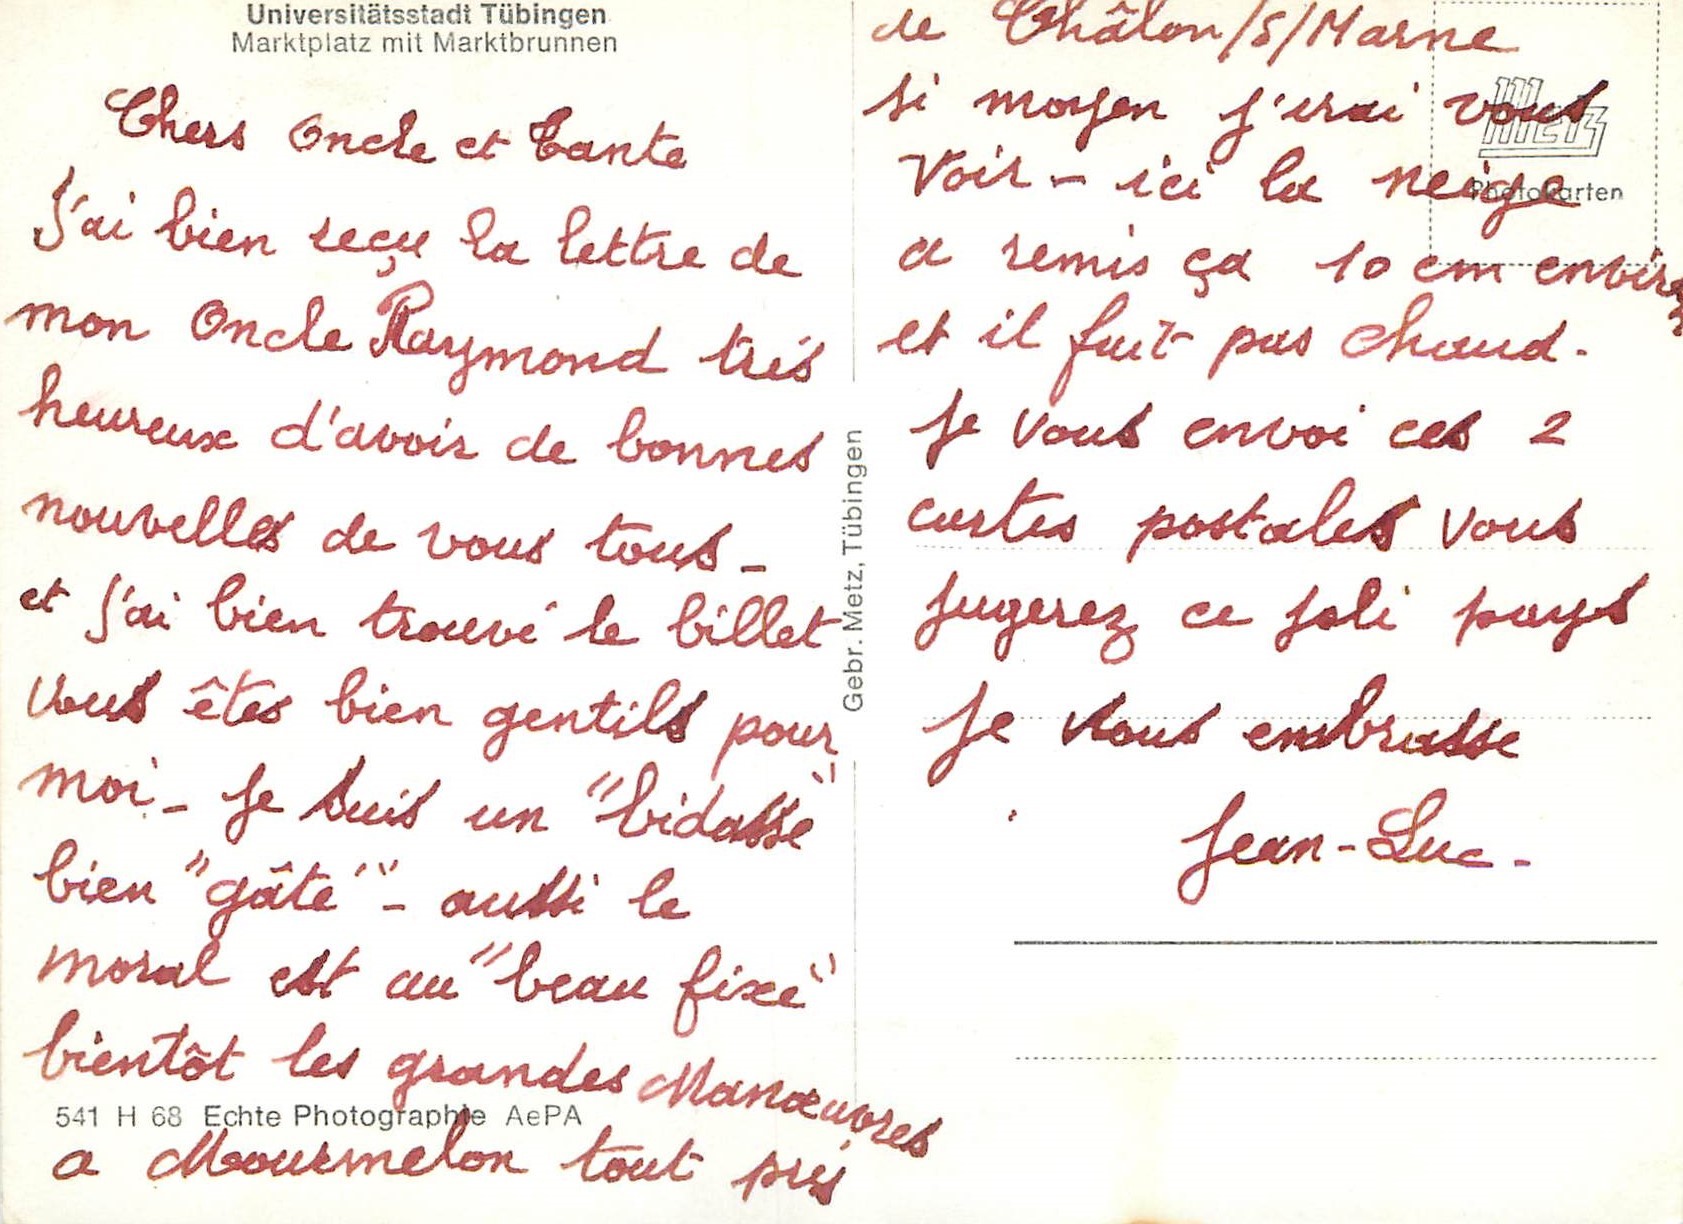 Universitätsstadt Tübingen
Marktplatz mit Marktbrunnen
Chers Oncle et Tante
J'ai bien reçu la lettre de
mon Oncle Raymond très
heureux d'avoir de bonnes
nouvelles de vous tous -
et j'ai bien trouvé le billet
vous êtes bien gentils pour
moi - Je suis un "bidasse"
bien "gâté" - aussi le
moral est au "beau fixe"
bientôt les grandes Manœuvres
541 H 68 Echte Photographie AePA
a Mourmelon tout près
Gebr. Metz, Tübingen
de Châlon/S/Marne
si moyen j'irai vous
Voir - ici la neige
a remis ça 10 cm environ
et il fait pas chaud.
Je vous envoi ces 2
cartes postales vous
jugerez ce joli pays
Je vous embrasse
Jean-Luc -
Metz
Photokarten